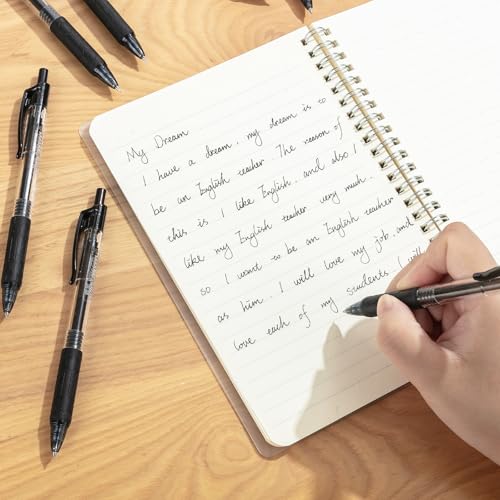 My Dream
I have a dream. my dream is to
be an English teacher. The reason of
this is I like English. and also I
like my English teacher very much.
so I want to be an English teacher
as him. I will love my job. and
love each of my students. I will